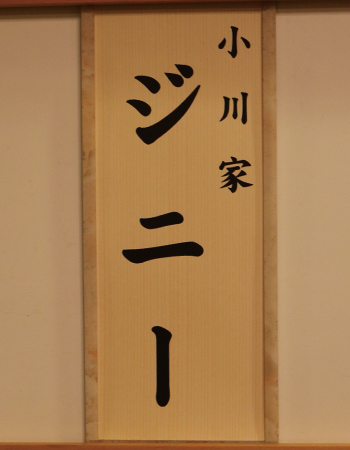 小川家
ジニー